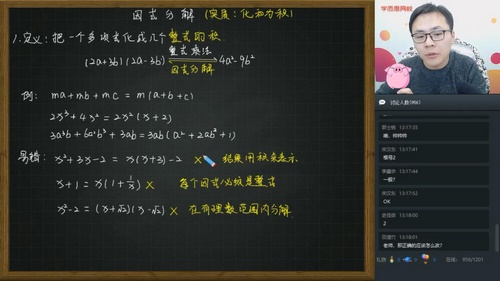 因式分解 (实质:化和为积)
1.定义:把一个多项式化成几个整式的积
(2a+3b)(2a-3b) 整式乘法 因式分解 4a²-9b²
例: ma+mb+mc = m(a+b+c)
2x³+4x² = 2x²(x+2)
3a³b+6a²b³+3ab=3ab(a²+2ab²+1)
易错: x²+3x-2 = x(x+3)-2 × 结果用积来表示
x+1 = x(1+1/x) × 每个因式必须是整式
x²-2 = (x+√2)(x-√2) × 在有理数范围内分解
学而思网校
讨论人数(986)
13:17:35
嗯,帅帅帅
13:17:45
根号2
13:17:45
一般?
13:17:52
OK
13:18:00
2
13:18:02
老师,那正确的应该怎么改?
礼物
在线:956/1201